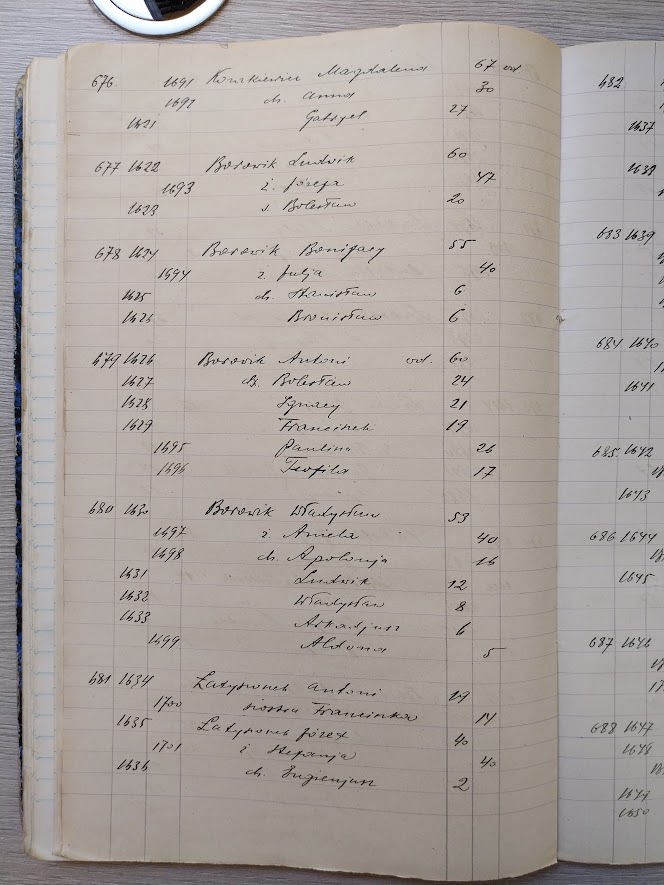 676. 1691 Magdalena 67 wd.
1692 ch. Anna 30
1621 Gabryel 27
677 1622 Borowik Ludwik 60
1693 ż. Józefa 47
1623 s. Bolesław 20
678 1624 Borowik Bonifacy 55
1694 ż. Julja 40
1625 ch. Stanisław 6
1625 Bronisław 6
679 1626 Borowik Antoni wd. 60
1627 ch. Bolesław 24
1628 Ignacy 21
1629 Franciszek 19
1695 Paulina 26
1696 Teofila 17
680 1630 Borowik Władysław 53
1697 ż Aniela 40
1698 ch. Apolonja 16
1631 Ludwik 12
1632 Władysław 8
1633 Arkadjusz 6
1699 Aldona 5
681 1634 Łatyszonek Antoni 19
1700 siostra Franciszka 14
1635 Łatyszonek Józef 40
1701 ż Stefanja 40
1636 ch. Eugenjusz 2
682
1637
1638
683 1639
684 1640
1641
685. 1642
1643
686 1644
1645
687 1646
688 1647
1648
1649
1650